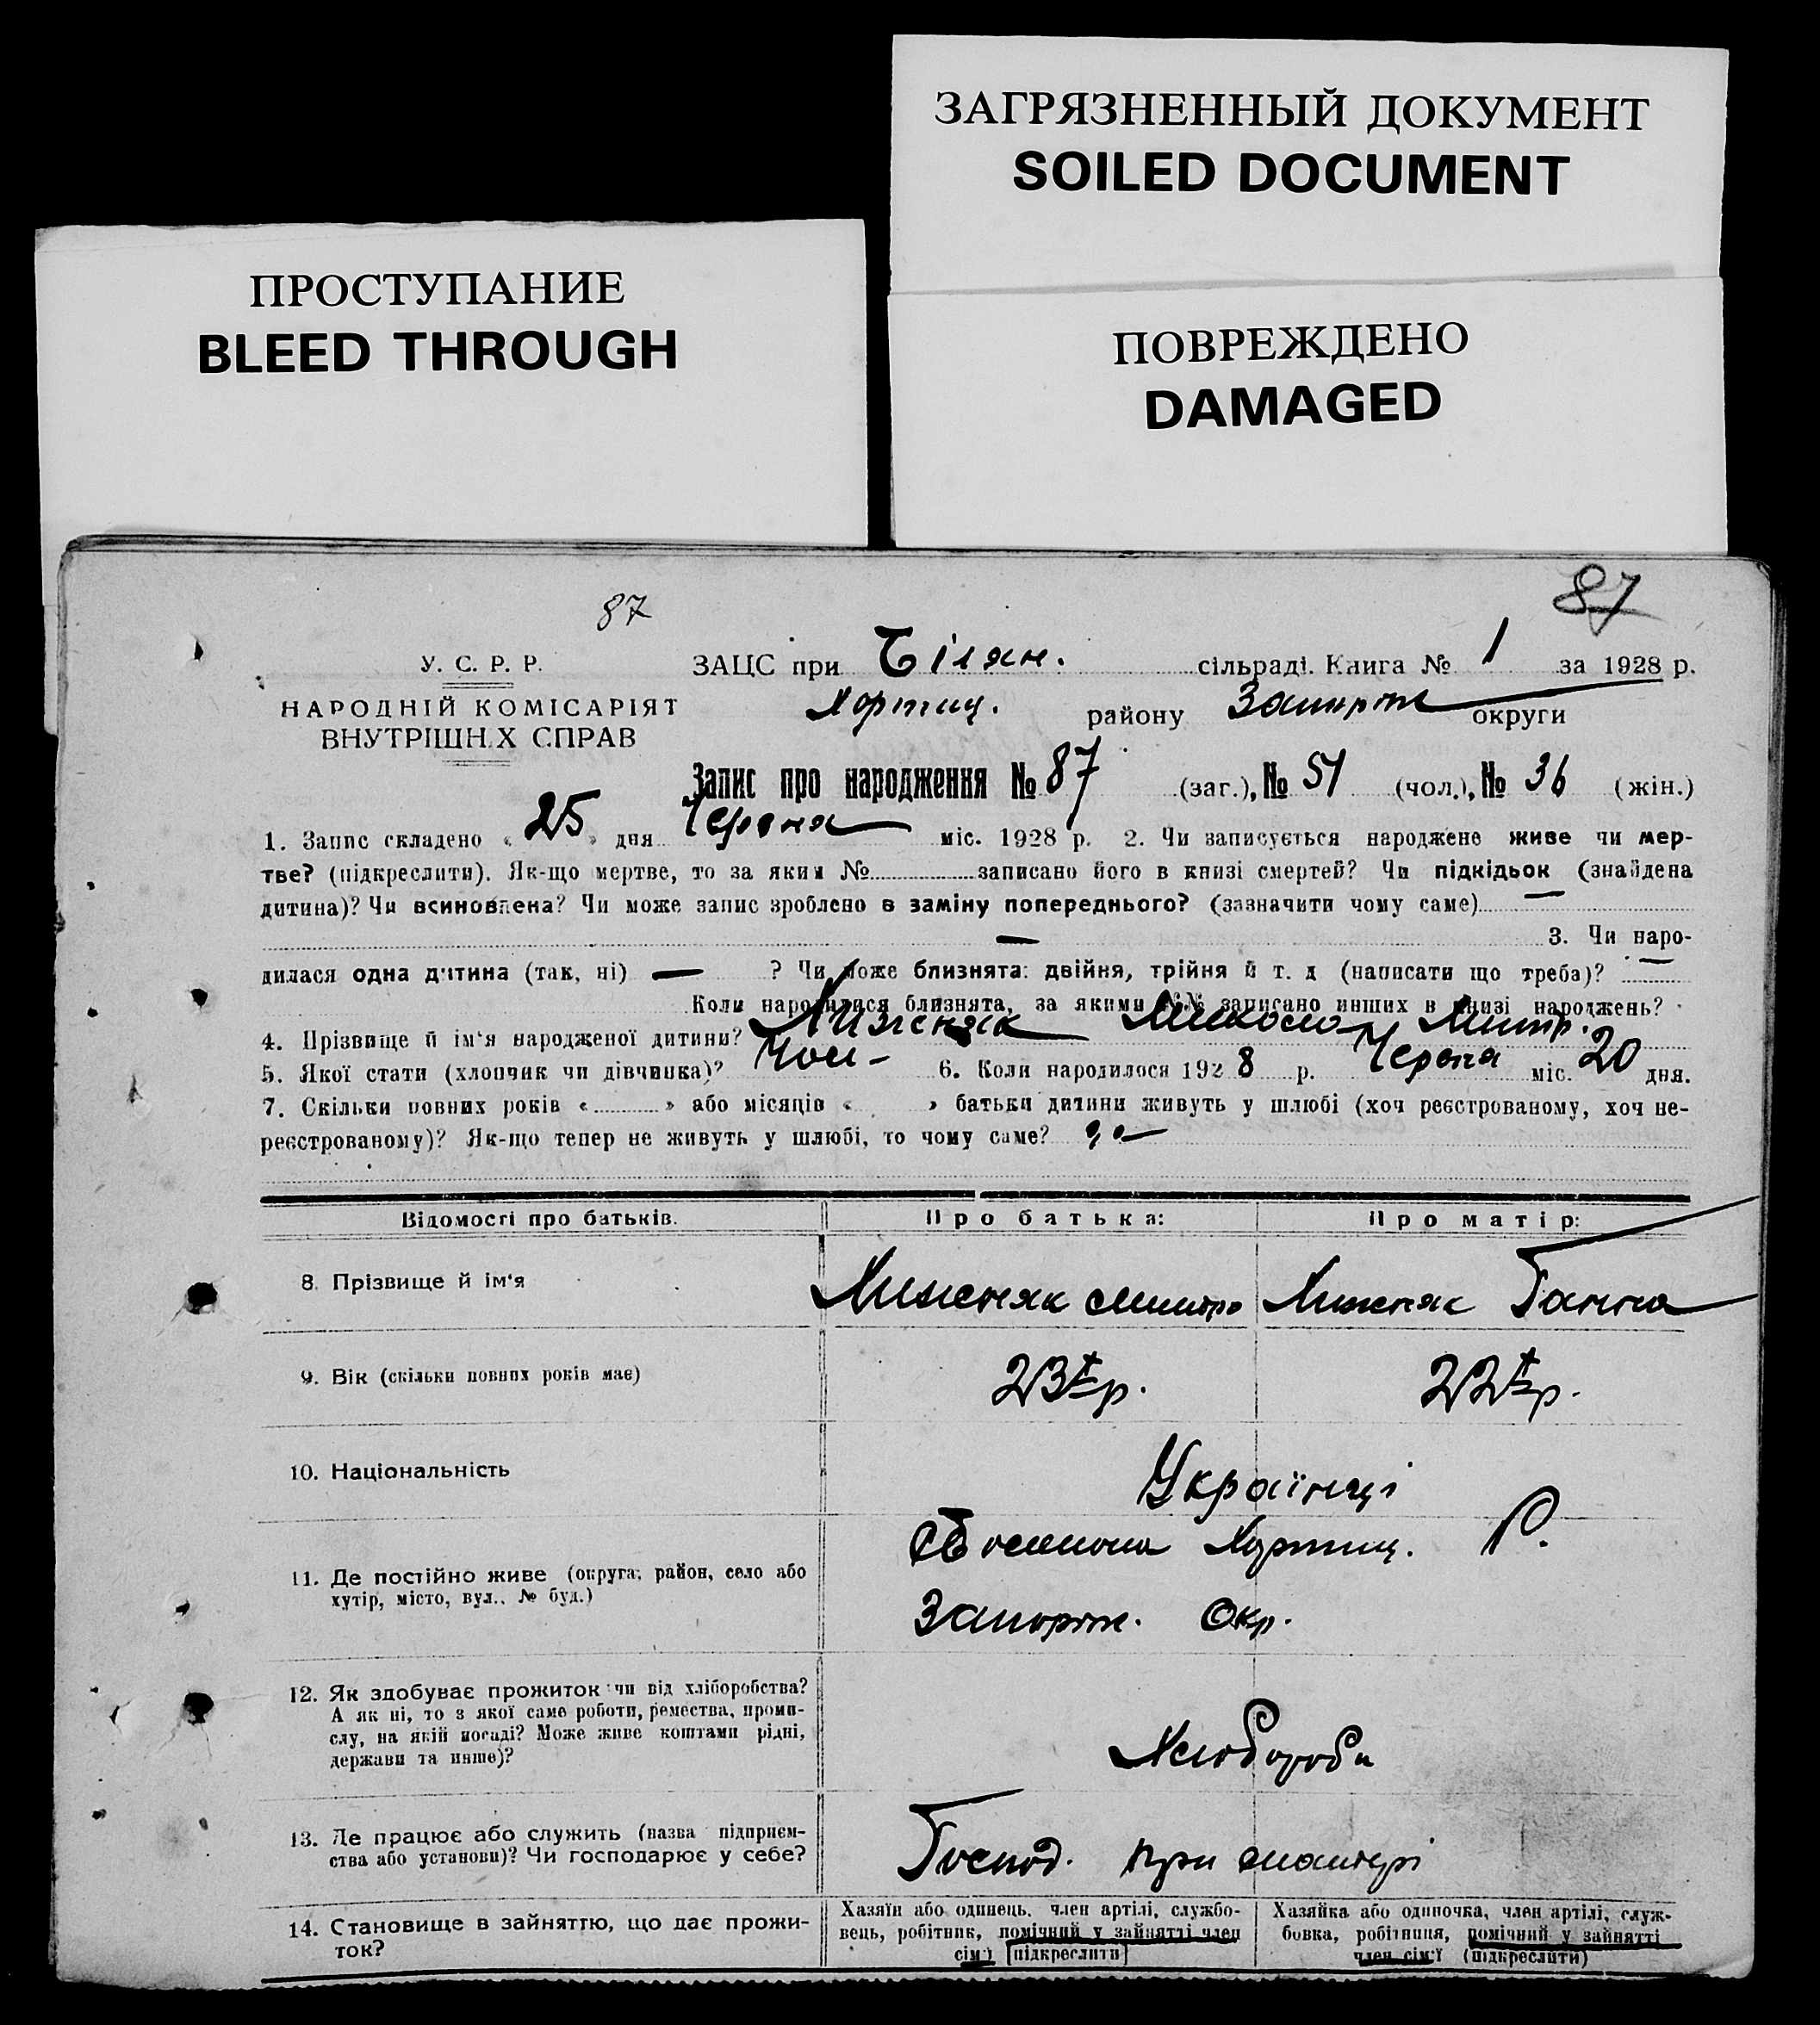 ЗАГРЯЗНЕННЫЙ ДОКУМЕНТ
SOILED DOCUMENT
ПРОСТУПАНИЕ
BLEED THROUGH
ПОВРЕЖДЕНО
DAMAGED
87
87
У. С. Р. Р.
НАРОДНІЙ КОМІСАРІЯТ
ВНУТРІШН.Х СПРАВ
ЗАЦС при Білян. сільраді. Книга № 1 за 1928 р.
Хортиц. району Запорож округи
Запис про народження № 87 (заг.), № 51 (чол.), № 36 (жін.)
1. Запис складено « 25 » дня Червня міс. 1928 р. 2. Чи записується народжене живе чи мер-
тве? (підкреслити). Як-що мертве, то за яким № записано його в книзі смертей? Чи підкідьок (знайдена
дитина)? Чи всиновлена? Чи може запис зроблено в заміну попереднього? (зазначити чому саме) —
— 3. Чи наро-
дилася одна дитина (так, ні) — ? Чи може близнята: двійня, трійня й т. д (написати що треба)? —
Коли народилися близнята, за якими №№ записано инших в книзі народжень?
4. Прізвище й ім'я народженої дитини? Хижняк Микола Митр.
5. Якої стати (хлопчик чи дівчинка)? Чол- 6. Коли народилося 1928 р. Червня міс. 20 дня.
7. Скільки повних років « » або місяців « » батьки дитини живуть у шлюбі (хоч реєстрованому, хоч не-
реєстрованому)? Як-що тепер не живуть у шлюбі, то чому саме?
Відомості про батьків.
Про батька:
Про матір:
8. Прізвище й ім'я
Хижняк Митро
Хижняк Ганна
9. Вік (скільки повних років має)
23 р.
22 р.
10. Національність
Українці
11. Де постійно живе (округа, район, село або
хутір, місто, вул., № буд.)
Хортиц. Р.
Запорож. Окр.
12. Як здобуває прожиток чи від хліборобства?
А як ні, то з якої саме роботи, ремества, проми-
слу, на якій посаді? Може живе коштами рідні,
держави та инше)?
Хлібороби
13. Де працює або служить (назва підприєм-
ства або установи)? Чи господарює у себе?
Господ. при матері
14. Становище в зайняттю, що дає прожи-
ток?
Хазяїн або одинець, член артілі, службо-
вець, робітник, помічний у зайнятті член
сім'ї (підкреслити)
Хазяйка або одиночка, член артілі, служ-
бовка, робітниця, помічний у зайнятті
член сім'ї (підкреслити)